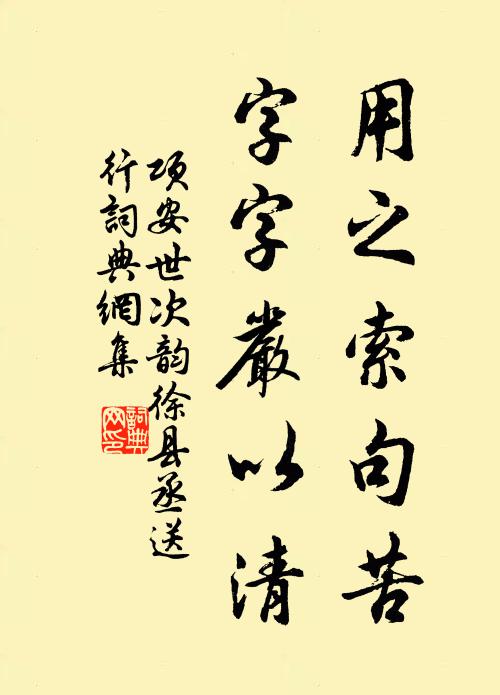 用之索句苦
字字嚴以清
项安世次韵徐县丞送
行詞典網集
詞典
网印